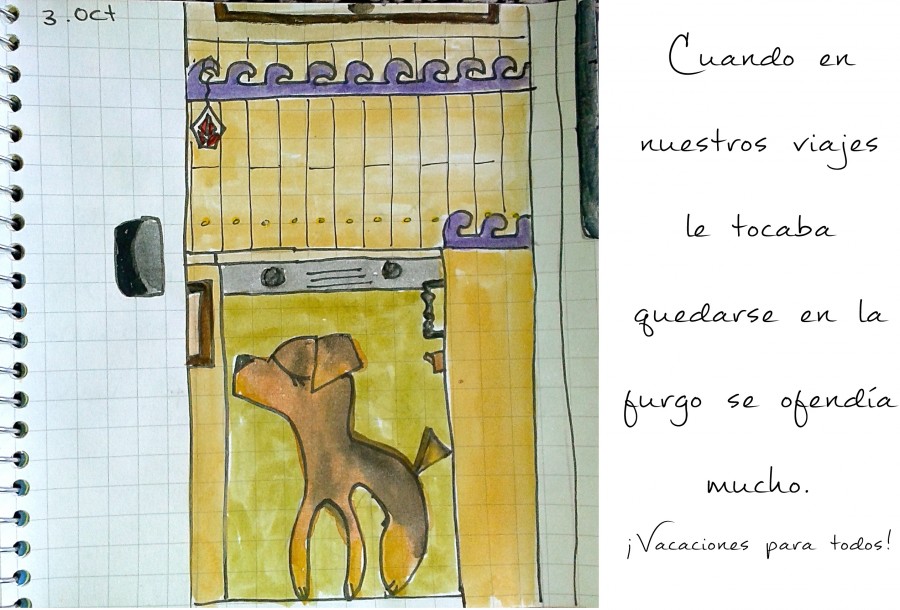 3. Oct
Cuando en
nuestros viajes
le tocaba
quedarse en la
furgo se ofendía
mucho.
¡Vacaciones para todos!